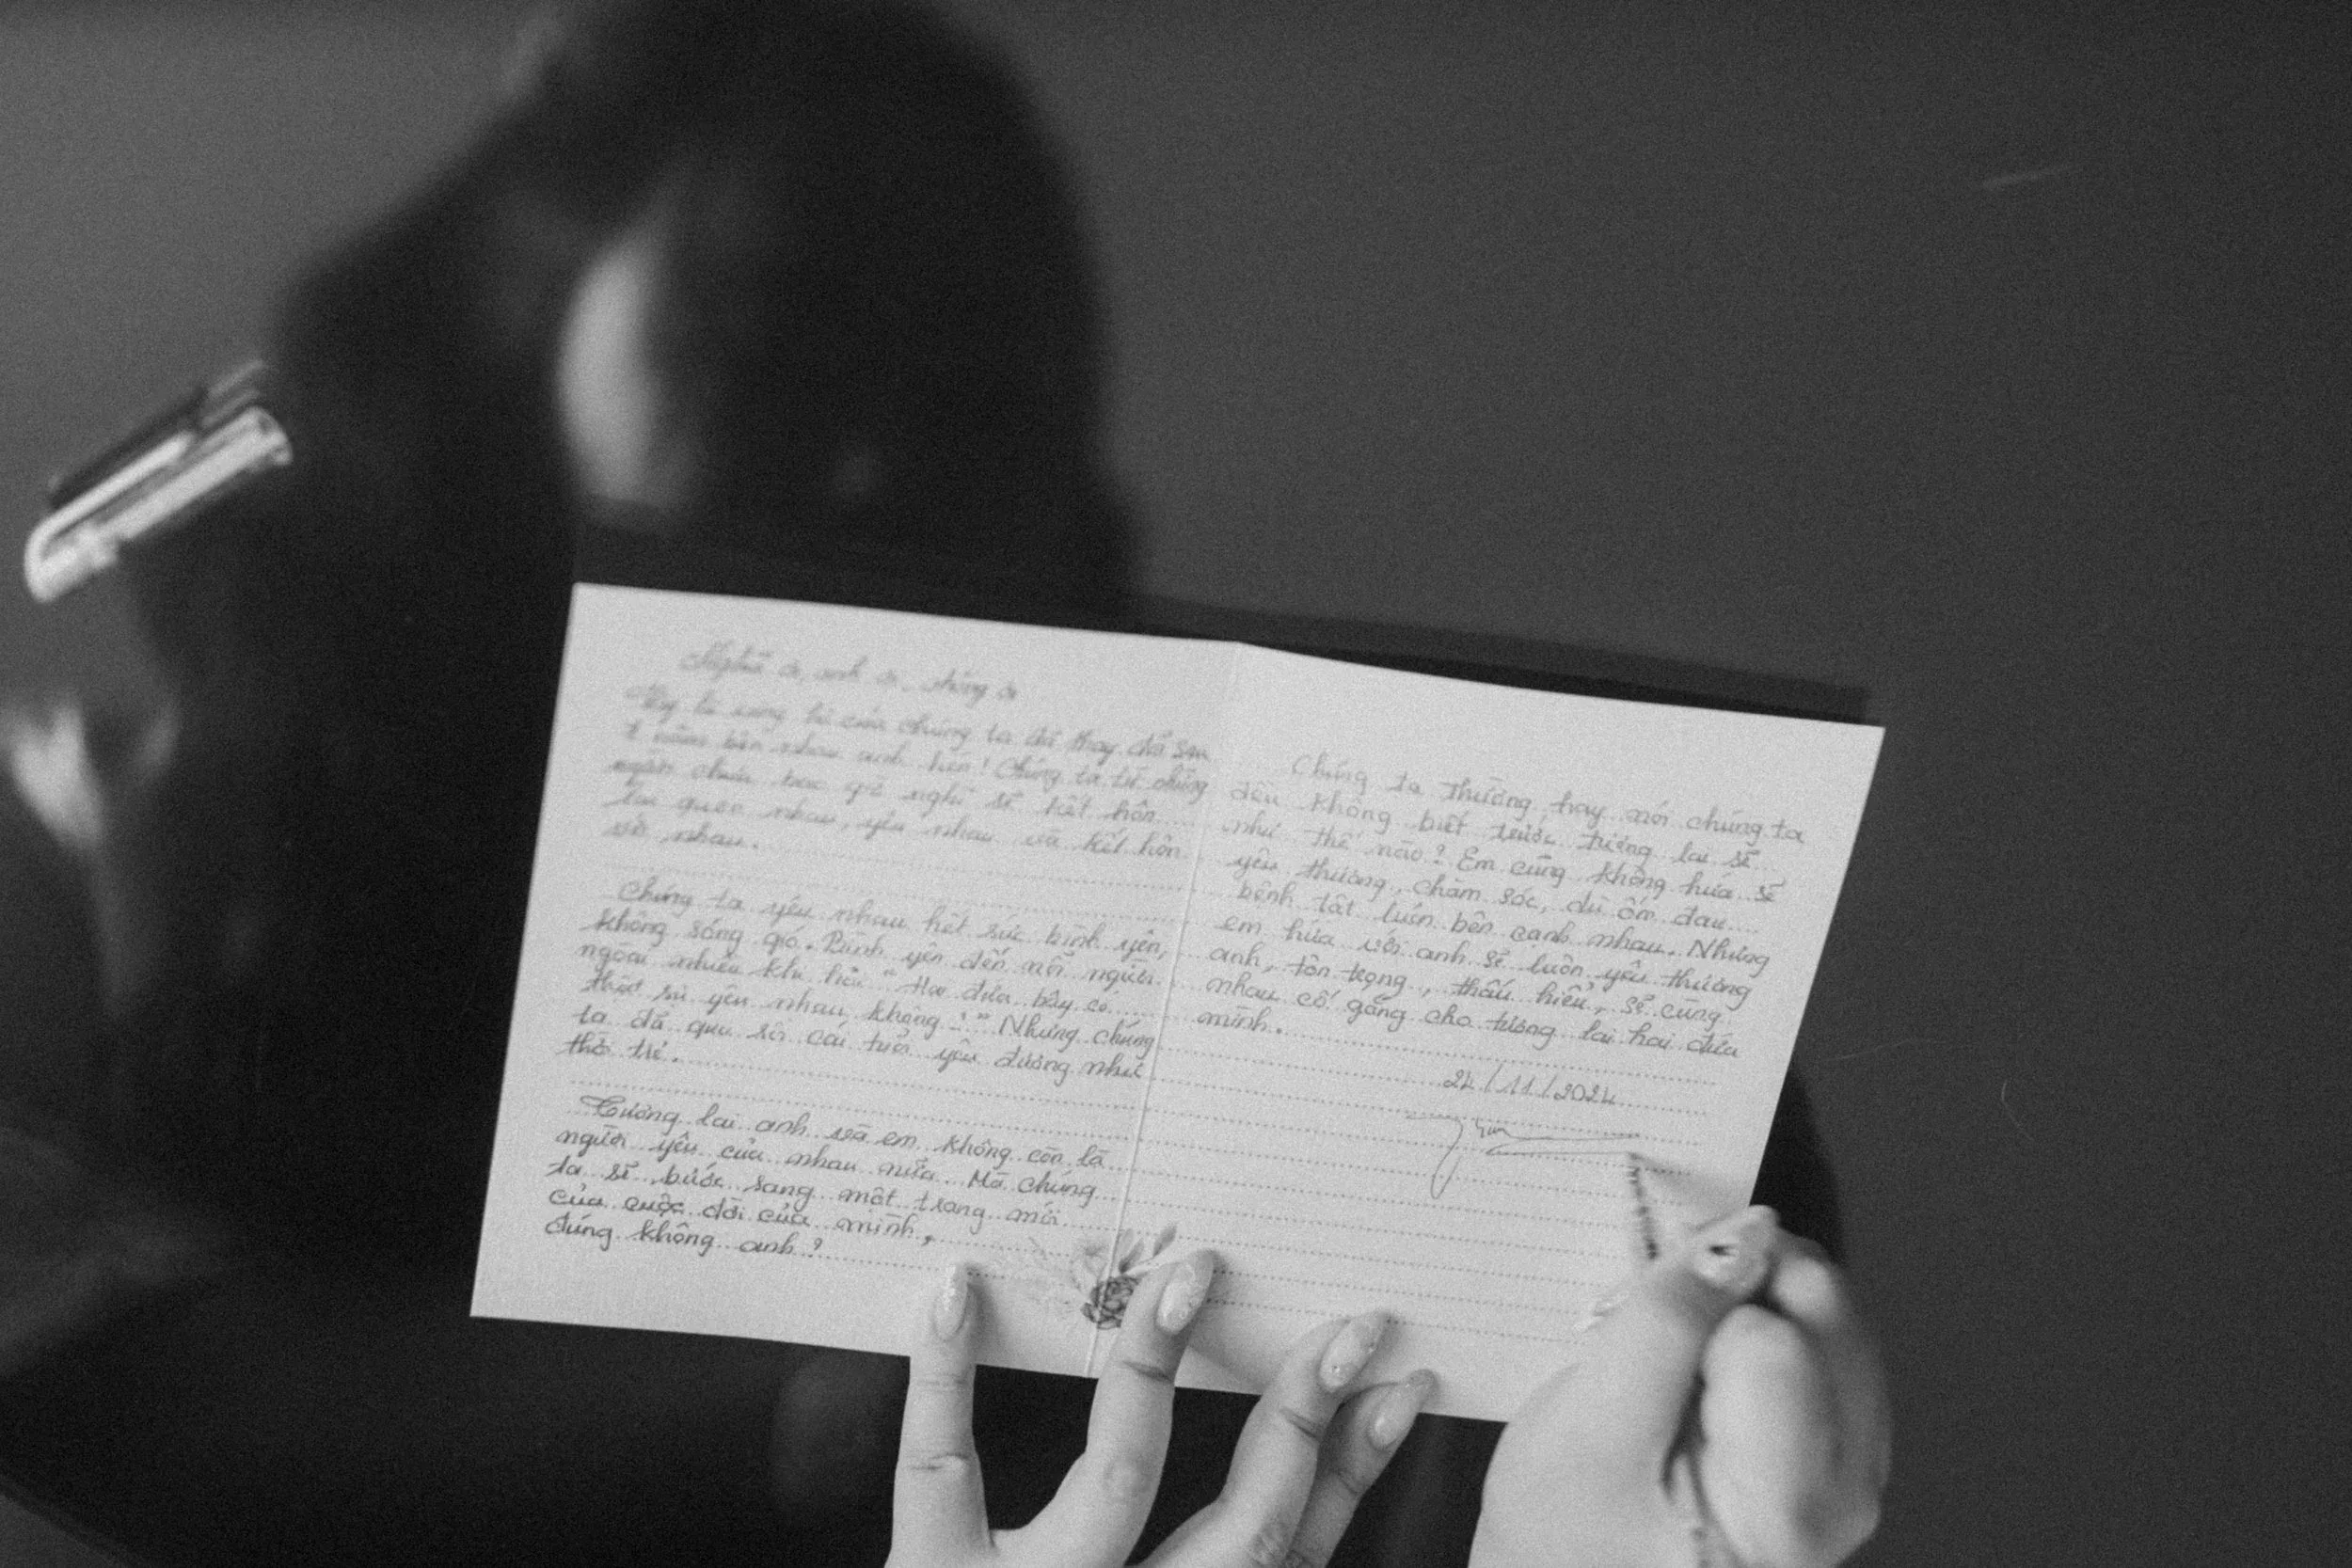 Nghĩa ơi, anh ơi, chồng ơi
Vậy là xưng hô của chúng ta đã thay đổi sau
năm bên nhau anh hen! Chúng ta từ chẳng
ngờ chưa bao giờ nghĩ sẽ kết hôn
lại quen nhau, yêu nhau và kết hôn
với nhau.
Chúng ta yêu nhau hết sức bình yên,
không sóng gió. Bình yên đến nỗi người
ngoài nhiều khi hỏi " Hai đứa bây có
thật sự yêu nhau không ? " Nhưng chúng
ta đã qua rồi cái tuổi yêu đương như
thời trẻ.
Tương lai anh và em không còn là
người yêu của nhau nữa. Mà chúng
ta sẽ bước sang một trang mới
của cuộc đời của mình,
đúng không anh ?
Chúng ta thường hay nói chúng ta
đều không biết trước tương lai sẽ
như thế nào ? Em cũng không hứa sẽ
yêu thương, chăm sóc, dù ốm đau
bệnh tật luôn bên cạnh nhau. Nhưng
em hứa với anh sẽ luôn yêu thương
anh, tôn trọng, thấu hiểu, sẽ cùng
nhau cố gắng cho tương lai hai đứa
mình.
24/11/2024